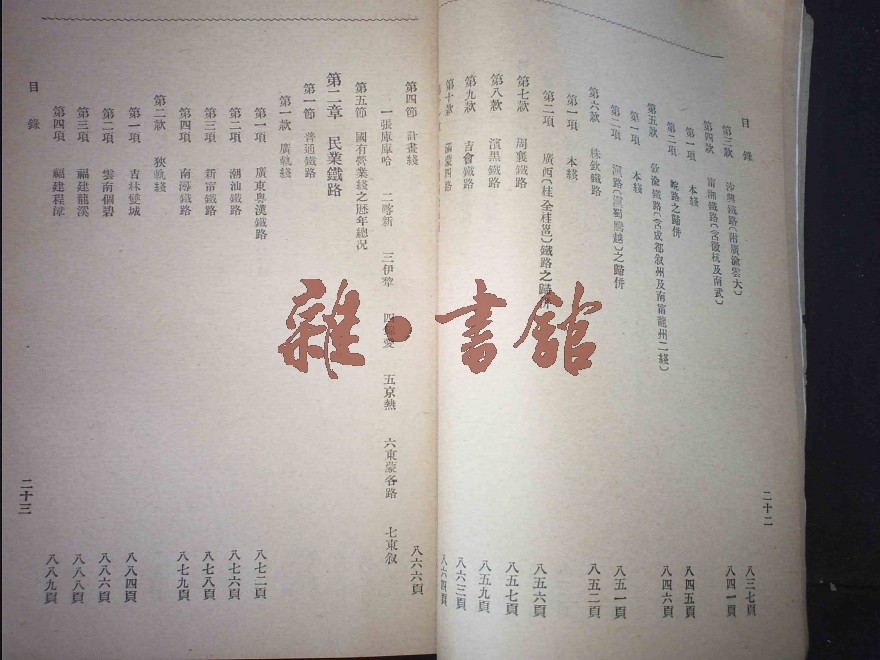 目錄
第三款 沙興鐵路(附廣渝雲大) 八三七頁
第四款 甯湘鐵路(含徽杭及南武) 八四一頁
第一項 本綫
第二項 皖路之歸併 八四五頁
第五款 欽渝鐵路(含成都敘州及南甯龍州二綫) 八四六頁
第一項 本綫
第二項 滇路(滇蜀騰越)之歸併 八五一頁
第六款 株欽鐵路 八五二頁
第一項 本綫
第二項 廣西(桂全桂邕)鐵路之歸併 八五六頁
第七款 周襄鐵路 八五七頁
第八款 濱黑鐵路 八五九頁
第九款 吉會鐵路 八六三頁
第十款 滿蒙四路 八六四頁
二十二
第四節 計畫綫 八六六頁
一張庫庫哈 二喀新 三伊犂 四 五京熱 六東蒙各路 七東敘
第五節 國有營業綫之歷年總況
第二章 民業鐵路
第一節 普通鐵路
第一款 廣軌綫
第一項 廣東粵漢鐵路 八七二頁
第二項 潮汕鐵路 八七六頁
第三項 新甯鐵路 八七八頁
第四項 南潯鐵路 八七九頁
第二款 狹軌綫
第一項 吉林雙城 八八四頁
第二項 雲南個碧 八八六頁
第三項 福建龍溪 八八八頁
第四項 福建程漳 八八九頁
目錄
二十三
雜·書館